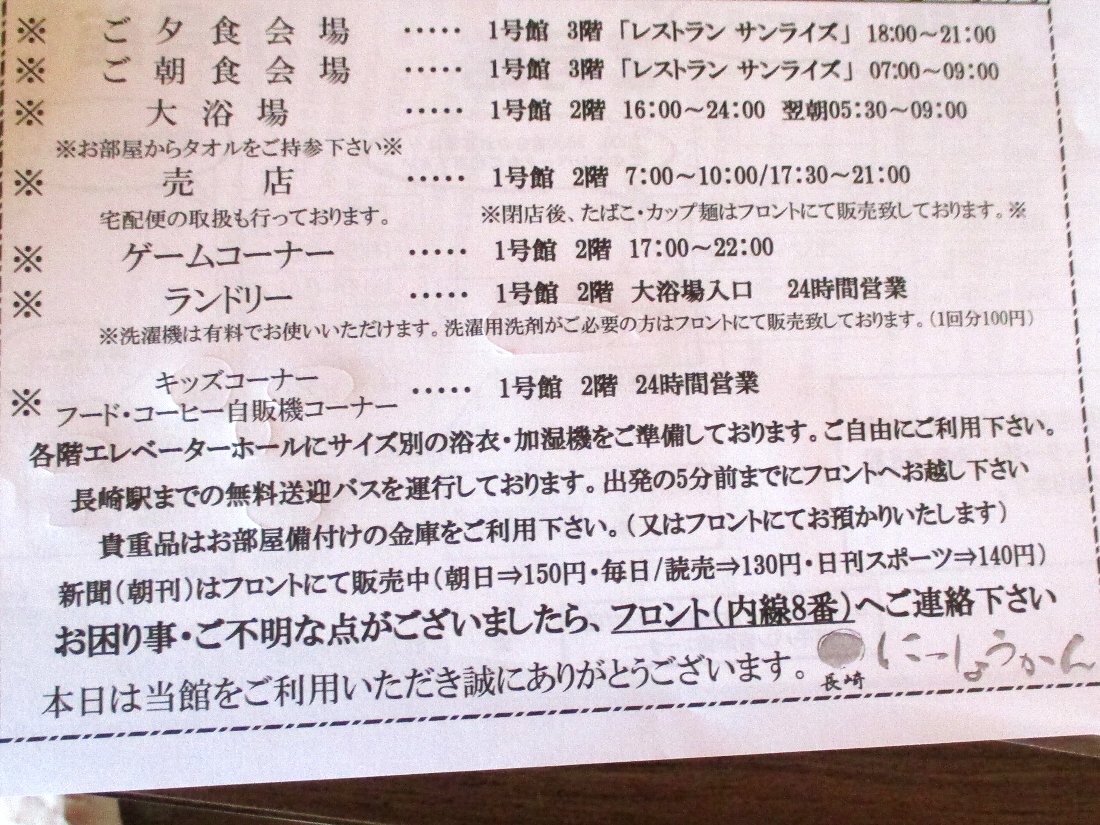 ※ ご夕食会場 ····· 1号館 3階 「レストラン サンライズ」 18:00～21:00
※ ご朝食会場 ····· 1号館 3階 「レストラン サンライズ」 07:00～09:00
※ 大浴場 ····· 1号館 2階 16:00～24:00 翌朝05:30～09:00
※お部屋からタオルをご持参下さい※
※ 売店 ····· 1号館 2階 7:00～10:00/17:30～21:00
宅配便の取扱も行っております。 ※閉店後、たばこ・カップ麺はフロントにて販売致しております。※
※ ゲームコーナー ····· 1号館 2階 17:00～22:00
※ ランドリー ····· 1号館 2階 大浴場入口 24時間営業
※洗濯機は有料でお使いいただけます。洗濯用洗剤がご必要の方はフロントにて販売致しております。（1回分100円）
キッズコーナー
※ フード・コーヒー自販機コーナー ····· 1号館 2階 24時間営業
各階エレベーターホールにサイズ別の浴衣・加湿機をご準備しております。ご自由にご利用下さい。
長崎駅までの無料送迎バスを運行しております。出発の5分前までにフロントへお越し下さい
貴重品はお部屋備付けの金庫をご利用下さい。（又はフロントにてお預かりいたします）
新聞（朝刊）はフロントにて販売中（朝日⇒150円・毎日/読売⇒130円・日刊スポーツ⇒140円）
お困り事・ご不明な点がございましたら、フロント（内線8番）へご連絡下さい
本日は当館をご利用いただき誠にありがとうございます。 長崎 にっしょうかん